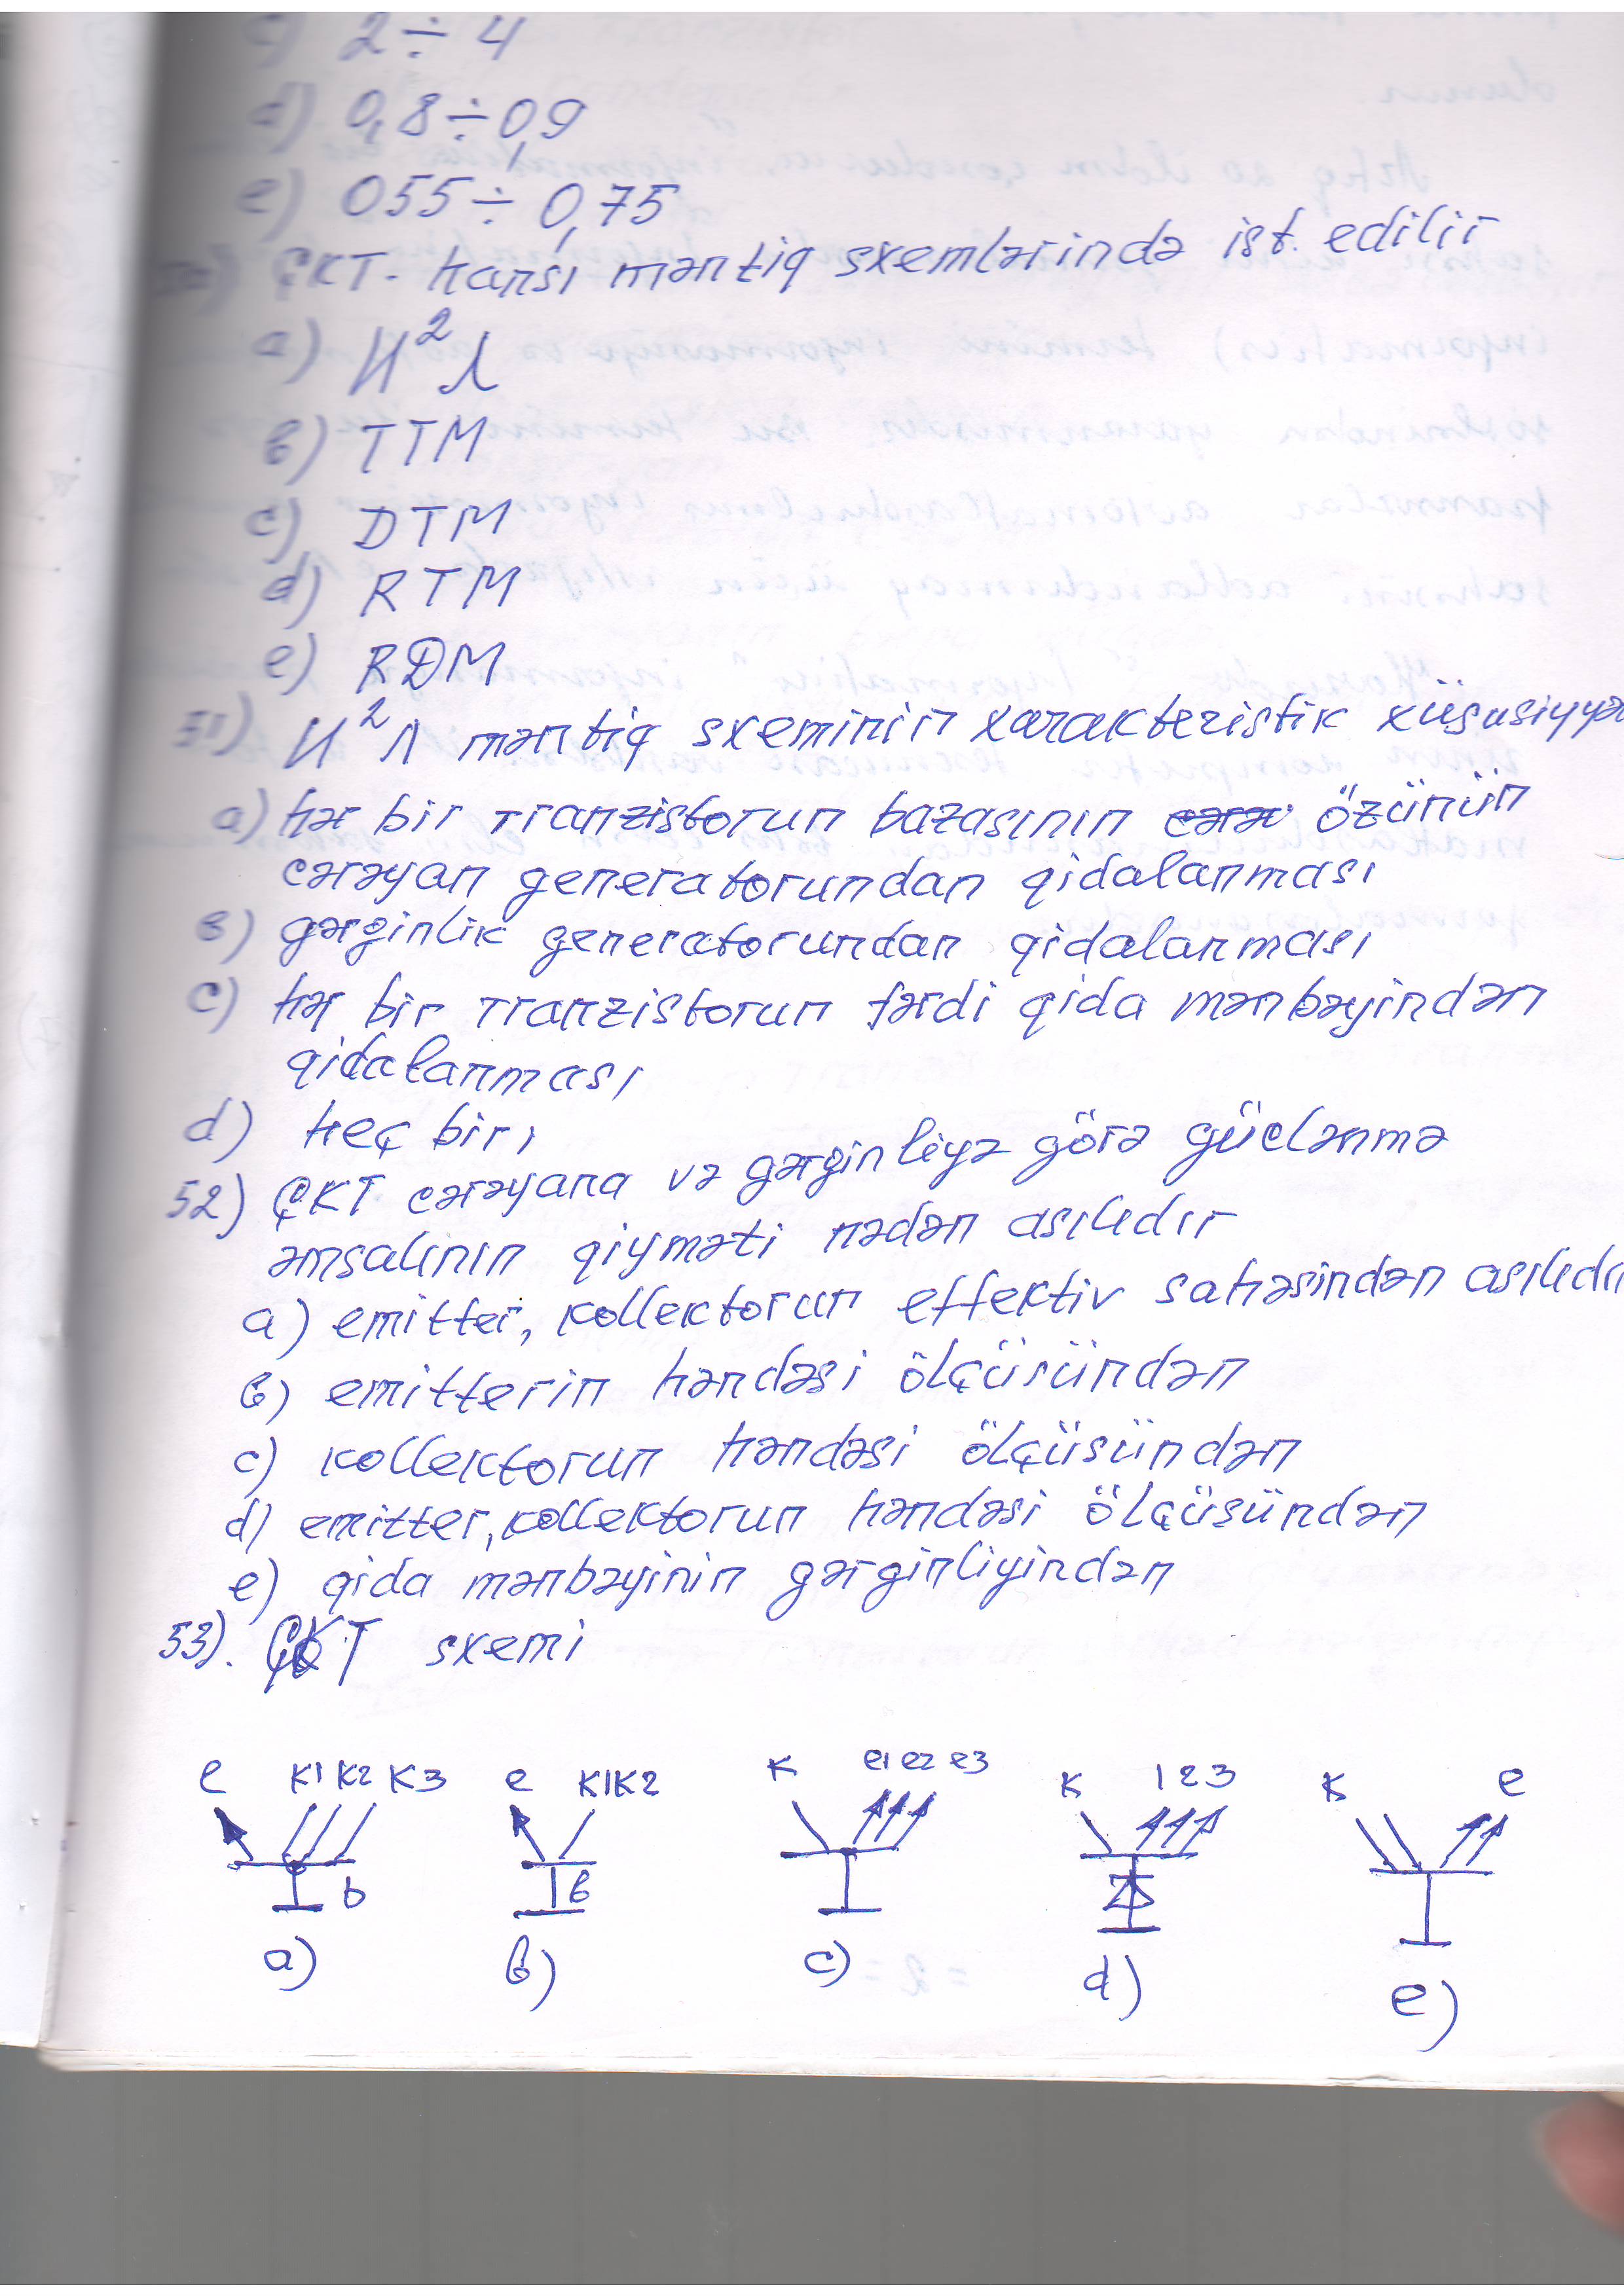 c) 2 ÷ 4
d) 0,8 ÷ 0,9
e) 055 ÷ 0,75
ÇKT- hansı məntiq sxemlərində ist. edilir
a) И²Л
b) TTM
c) DTM
d) RTM
e) RDM
51) И²Л məntiq sxeminin xarakteristik
a) hər bir tranzistorun bazasının özünün
cərəyan generatorundan qidalanması
b) gərginlik generatorundan qidalanması
c) hər bir tranzistorun fərdi qida mənbəyindən
qidalanması
d) heç biri
52) ÇKT cərəyana və gərginliyə görə güclənmə
əmsalının qiyməti nədən asılıdır
a) emitter, kollektorun effektiv sahəsindən asılıdır
b) emitterin həndəsi ölçüsündən
c) kollektorun həndəsi ölçüsündən
d) emitter, kollektorun həndəsi ölçüsündən
e) qida mənbəyinin gərginliyindən
53). ÇKT sxemi
e K1 K2 K3 e K1K2 K e1 e2 e3 K 1 2 3 K e
b b
a) b) c) d) e)